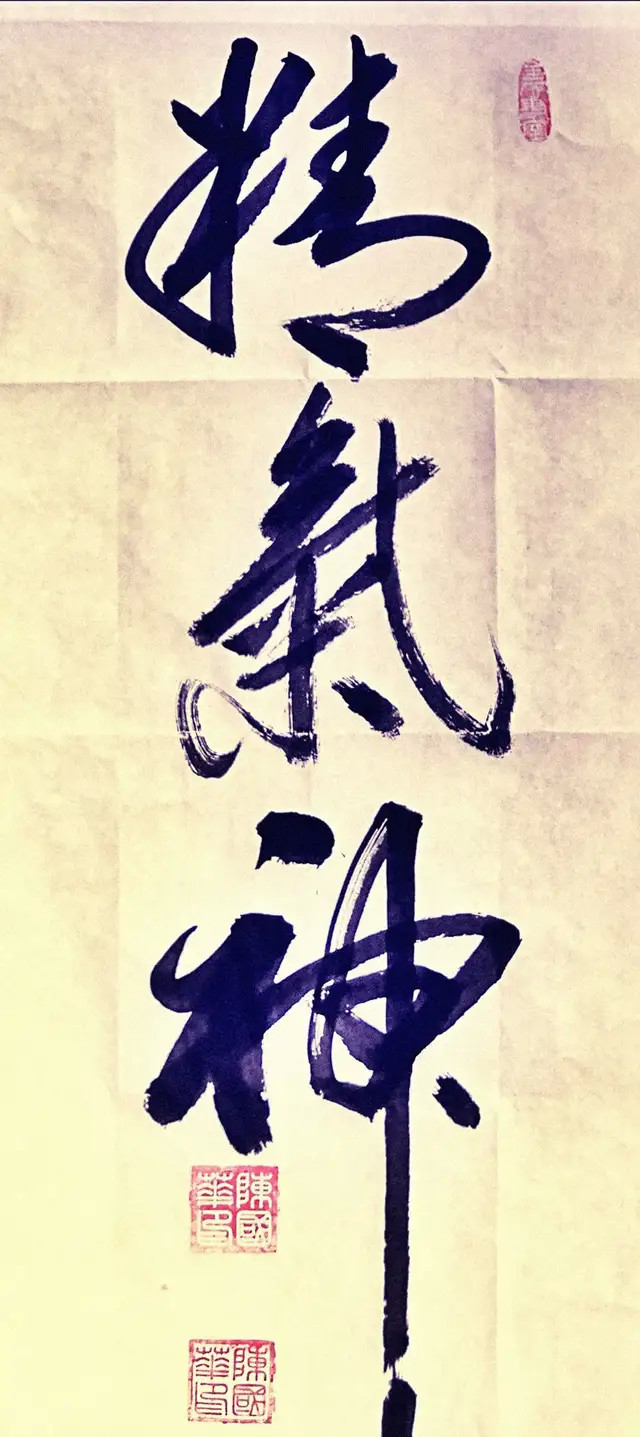 精氣神
陳國華印
陳國華印